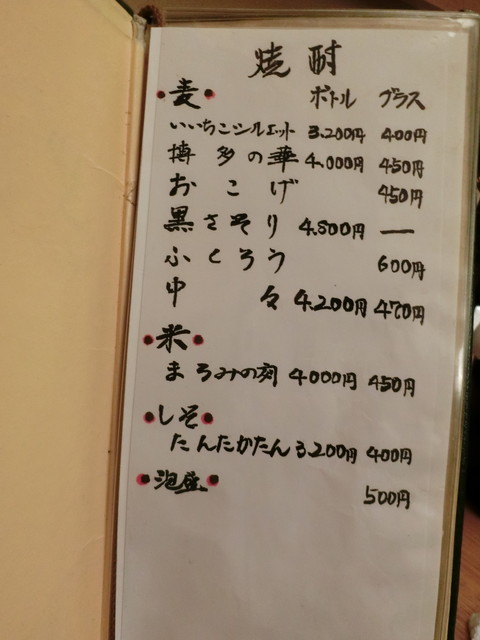 焼酎
・麦・ ボトル グラス
いいちこシルエット 3,200円 400円
博多の華 4,000円 450円
おこげ 450円
黒さそり 4,800円 ―
ふくろう 600円
中々 4,200円 470円
・米・
まろみの刻 4000円 450円
・しそ・
たんたかたん 3,200円 400円
・泡盛・ 500円